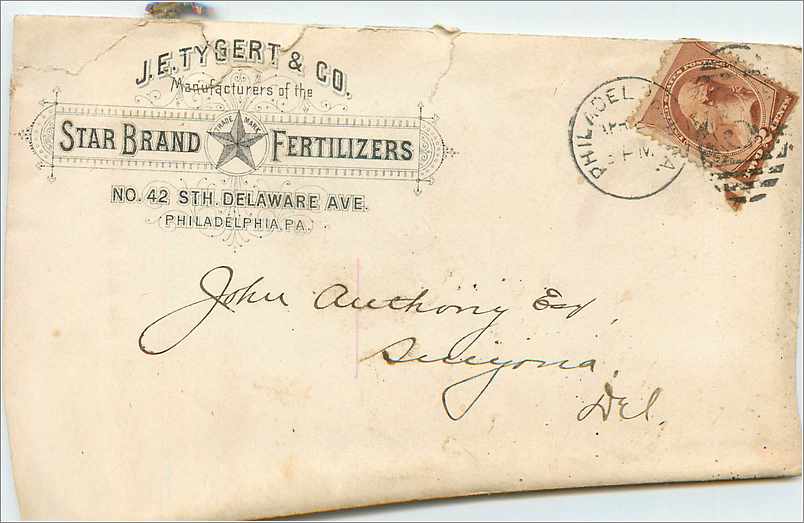 J. E. TYGERT & CO.
Manufacturers of the
STAR BRAND TRADE MARK FERTILIZERS
NO. 42 STH. DELAWARE AVE.
PHILADELPHIA, PA.
PHILADEL PA.
PM
John Anthony Esq
Smyrna
Del.